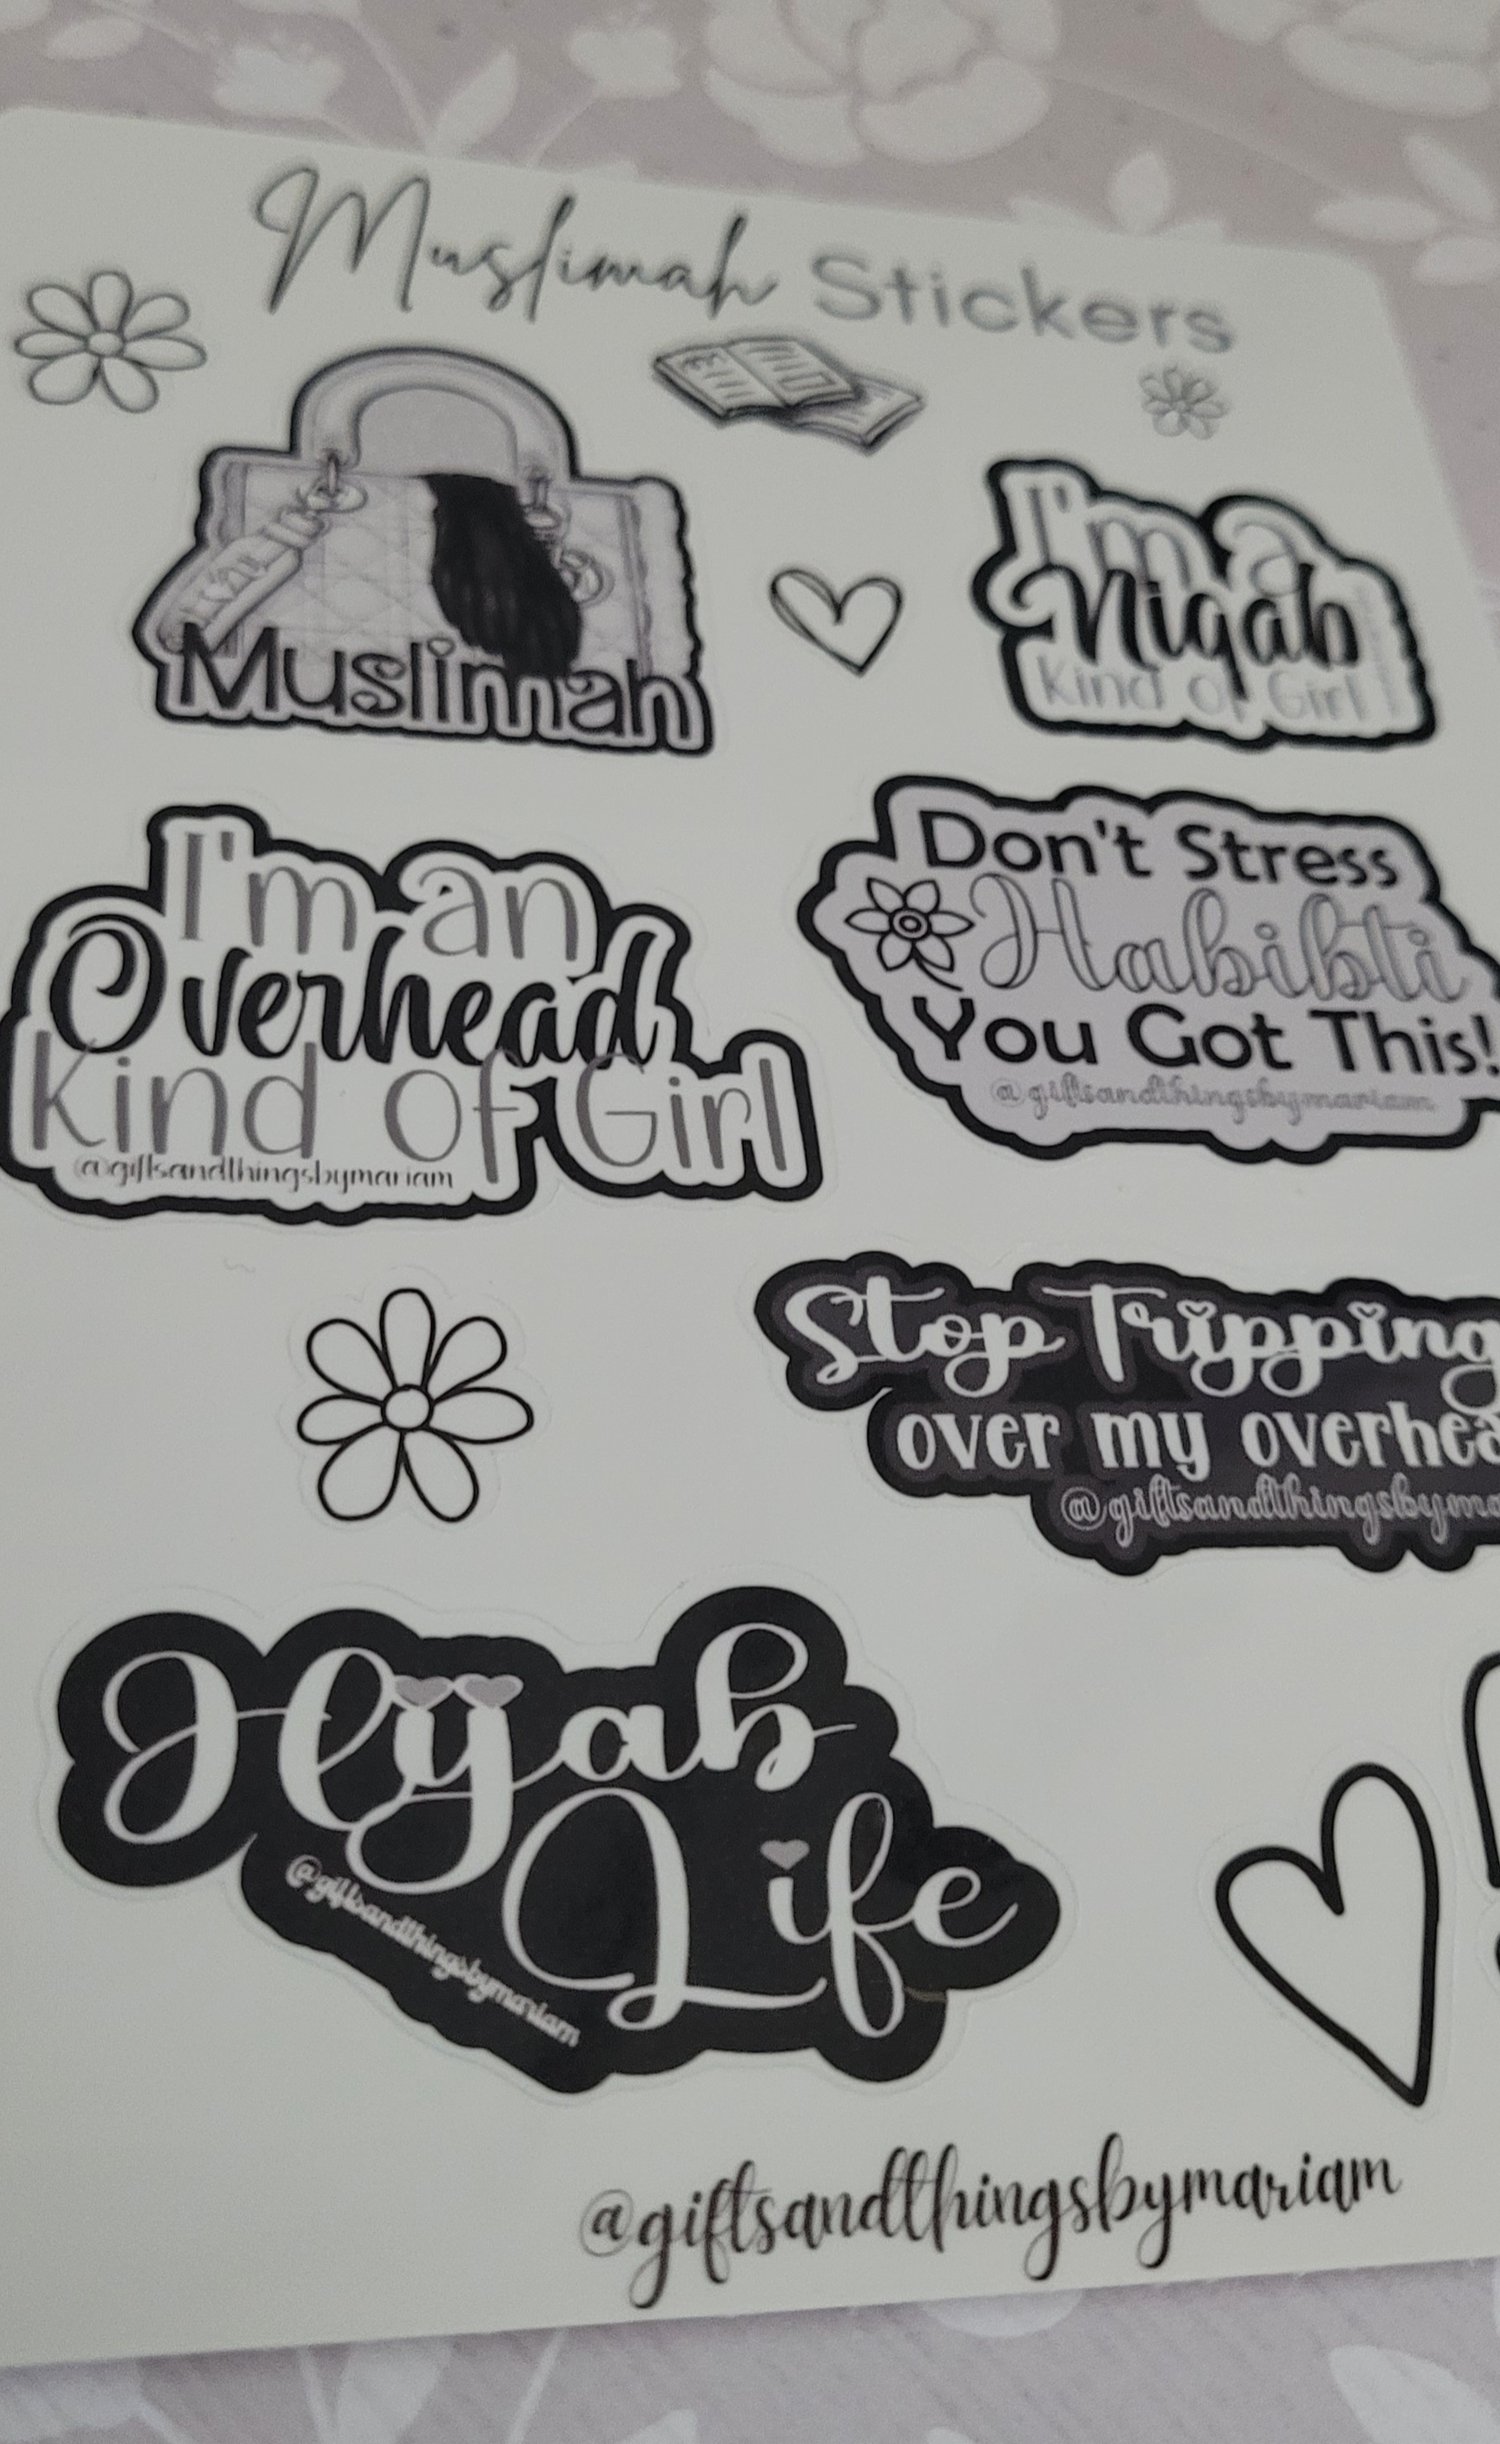 Muslimah Stickers
Muslimah
I'm a
Niqab
Kind of Girl
I'm an
Overhead
Kind of Girl
@giftsandthingsbymariam
Don't Stress
Habibti
You Got This!
@giftsandthingsbymariam
Stop Tripping
over my
Hijab
Life
@giftsandthingsbymariam
@giftsandthingsbymariam